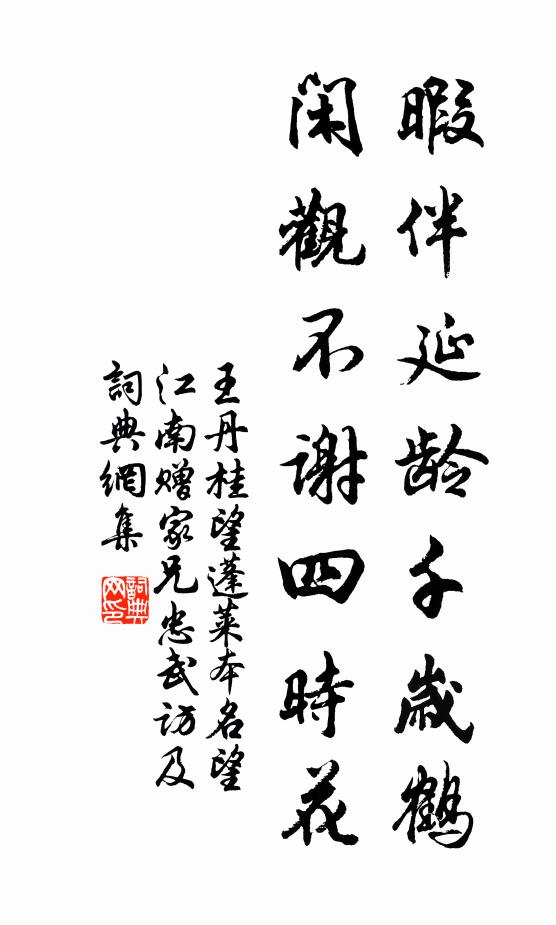 暇伴延龄千歲鶴
閑觀不谢四時花
王丹桂望蓬萊本名望
江南赠家兄忠武访及
詞典網集
詞典網印